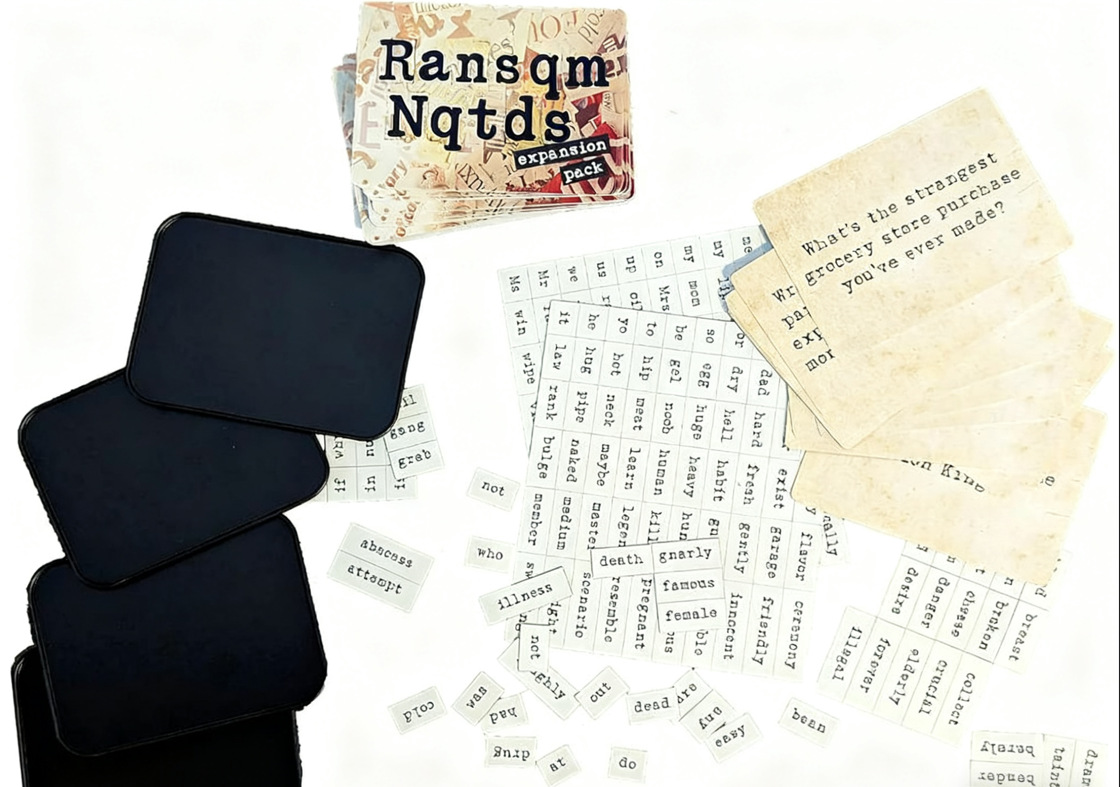 Ransqm
Nqtds
expansion
pack
What's the strangest
grocery store purchase
you've ever made?
Ms Mr we us up on my
win Mrs mom
wipe
it he yo to be so or dad
law hug hot hip gel egg dry hard
rank pipe neck meat noob huge hell fresh exist
bulge naked maybe learn human heavy habit gently garage flavor
member medium
scenario resemble pregnant innocent friendly ceremony
gang
grab
not
who
abscess
attempt
death gnarly
famous
female
illness
not
cold
was
bad
out
dead
easy
bean
drug
at
do
desire danger cheese broken breast
illegal forever elderly crucial collect
barely
bender